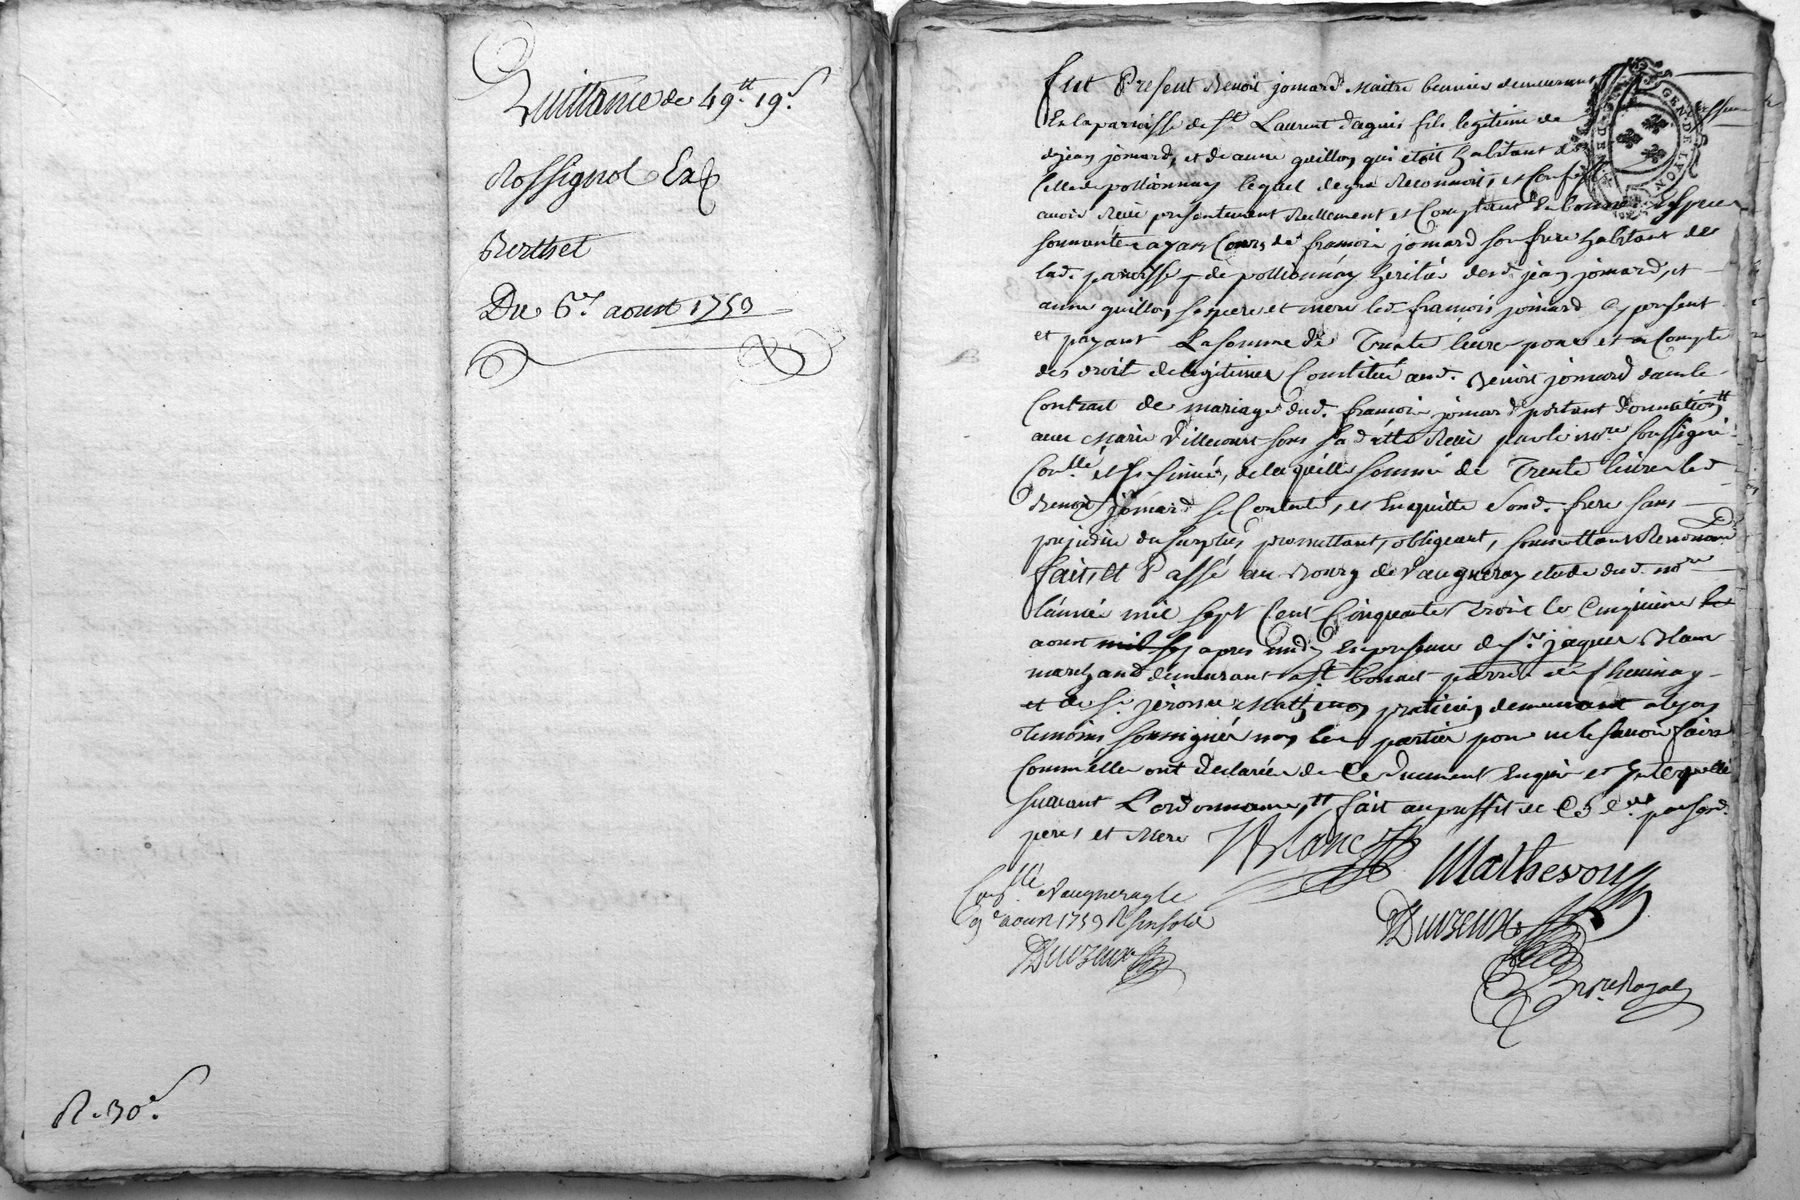 Quittance de 49.tt 19.s
Rossignol Ex
Berthet
Du 6.e aoust 1753
R. 30s.
GEN. DE LYON
Fut Present Benoit jomard Maitre demeurant
En la paroisse de St Laurent dagnis fils legitime de
dejean jomard, et de anne guillon qui étoit habitant de
Celle de pollionnay lequel degré Reconnoit, et Confesse
avoir Receu presentement Reellement et Comptant En bonnes Especes
sonnantes ayant Cours de francois jomard son frere habitant de
lad. paroisse de pollionnay heritier desd. jean jomard, et
anne guillon ses pere et mere led. francois jomard cy present
et payant La somme de Trente livres pour et a Compte
des droit de legitimes Constitué aud. Benoit jomard dans le
Contrat de mariage dud. francois jomard portant donnation
avec Marie Villecourt sous sa datte Receu par le nore soussigné
Conllé et Insinué, de laquelle somme de Trente livres led.
Benoit jomard se Contente, et En quitte sond. frere sans
prejudice du surplus promettant, obligeant, soumettant Renoncant
fait, et Passé au Bourg de Vaugneray etude dud. nore
l'année mil sept Cent Cinquante Trois le Cinquieme
aoust apres midy En presence de sr. jaques Blanc
marchand demeurant a St bonnet parroisse de Chevinay
et de sr. jerome Mathevon praticien demeurant a lyon
Temoins soussignés non les parties pour ne le savoir faire
Comm'elles ont declarée de Ce duement Enquis et Interpellé
suivant L'ordonnance, fait au proffit de par sesd.
pere, et Mere
JBlanc
Mathevon
Duvzeux
Nre. Royal
Conllé a Vaugneray le
9e aoust 1753 R six sols
Duvzeux